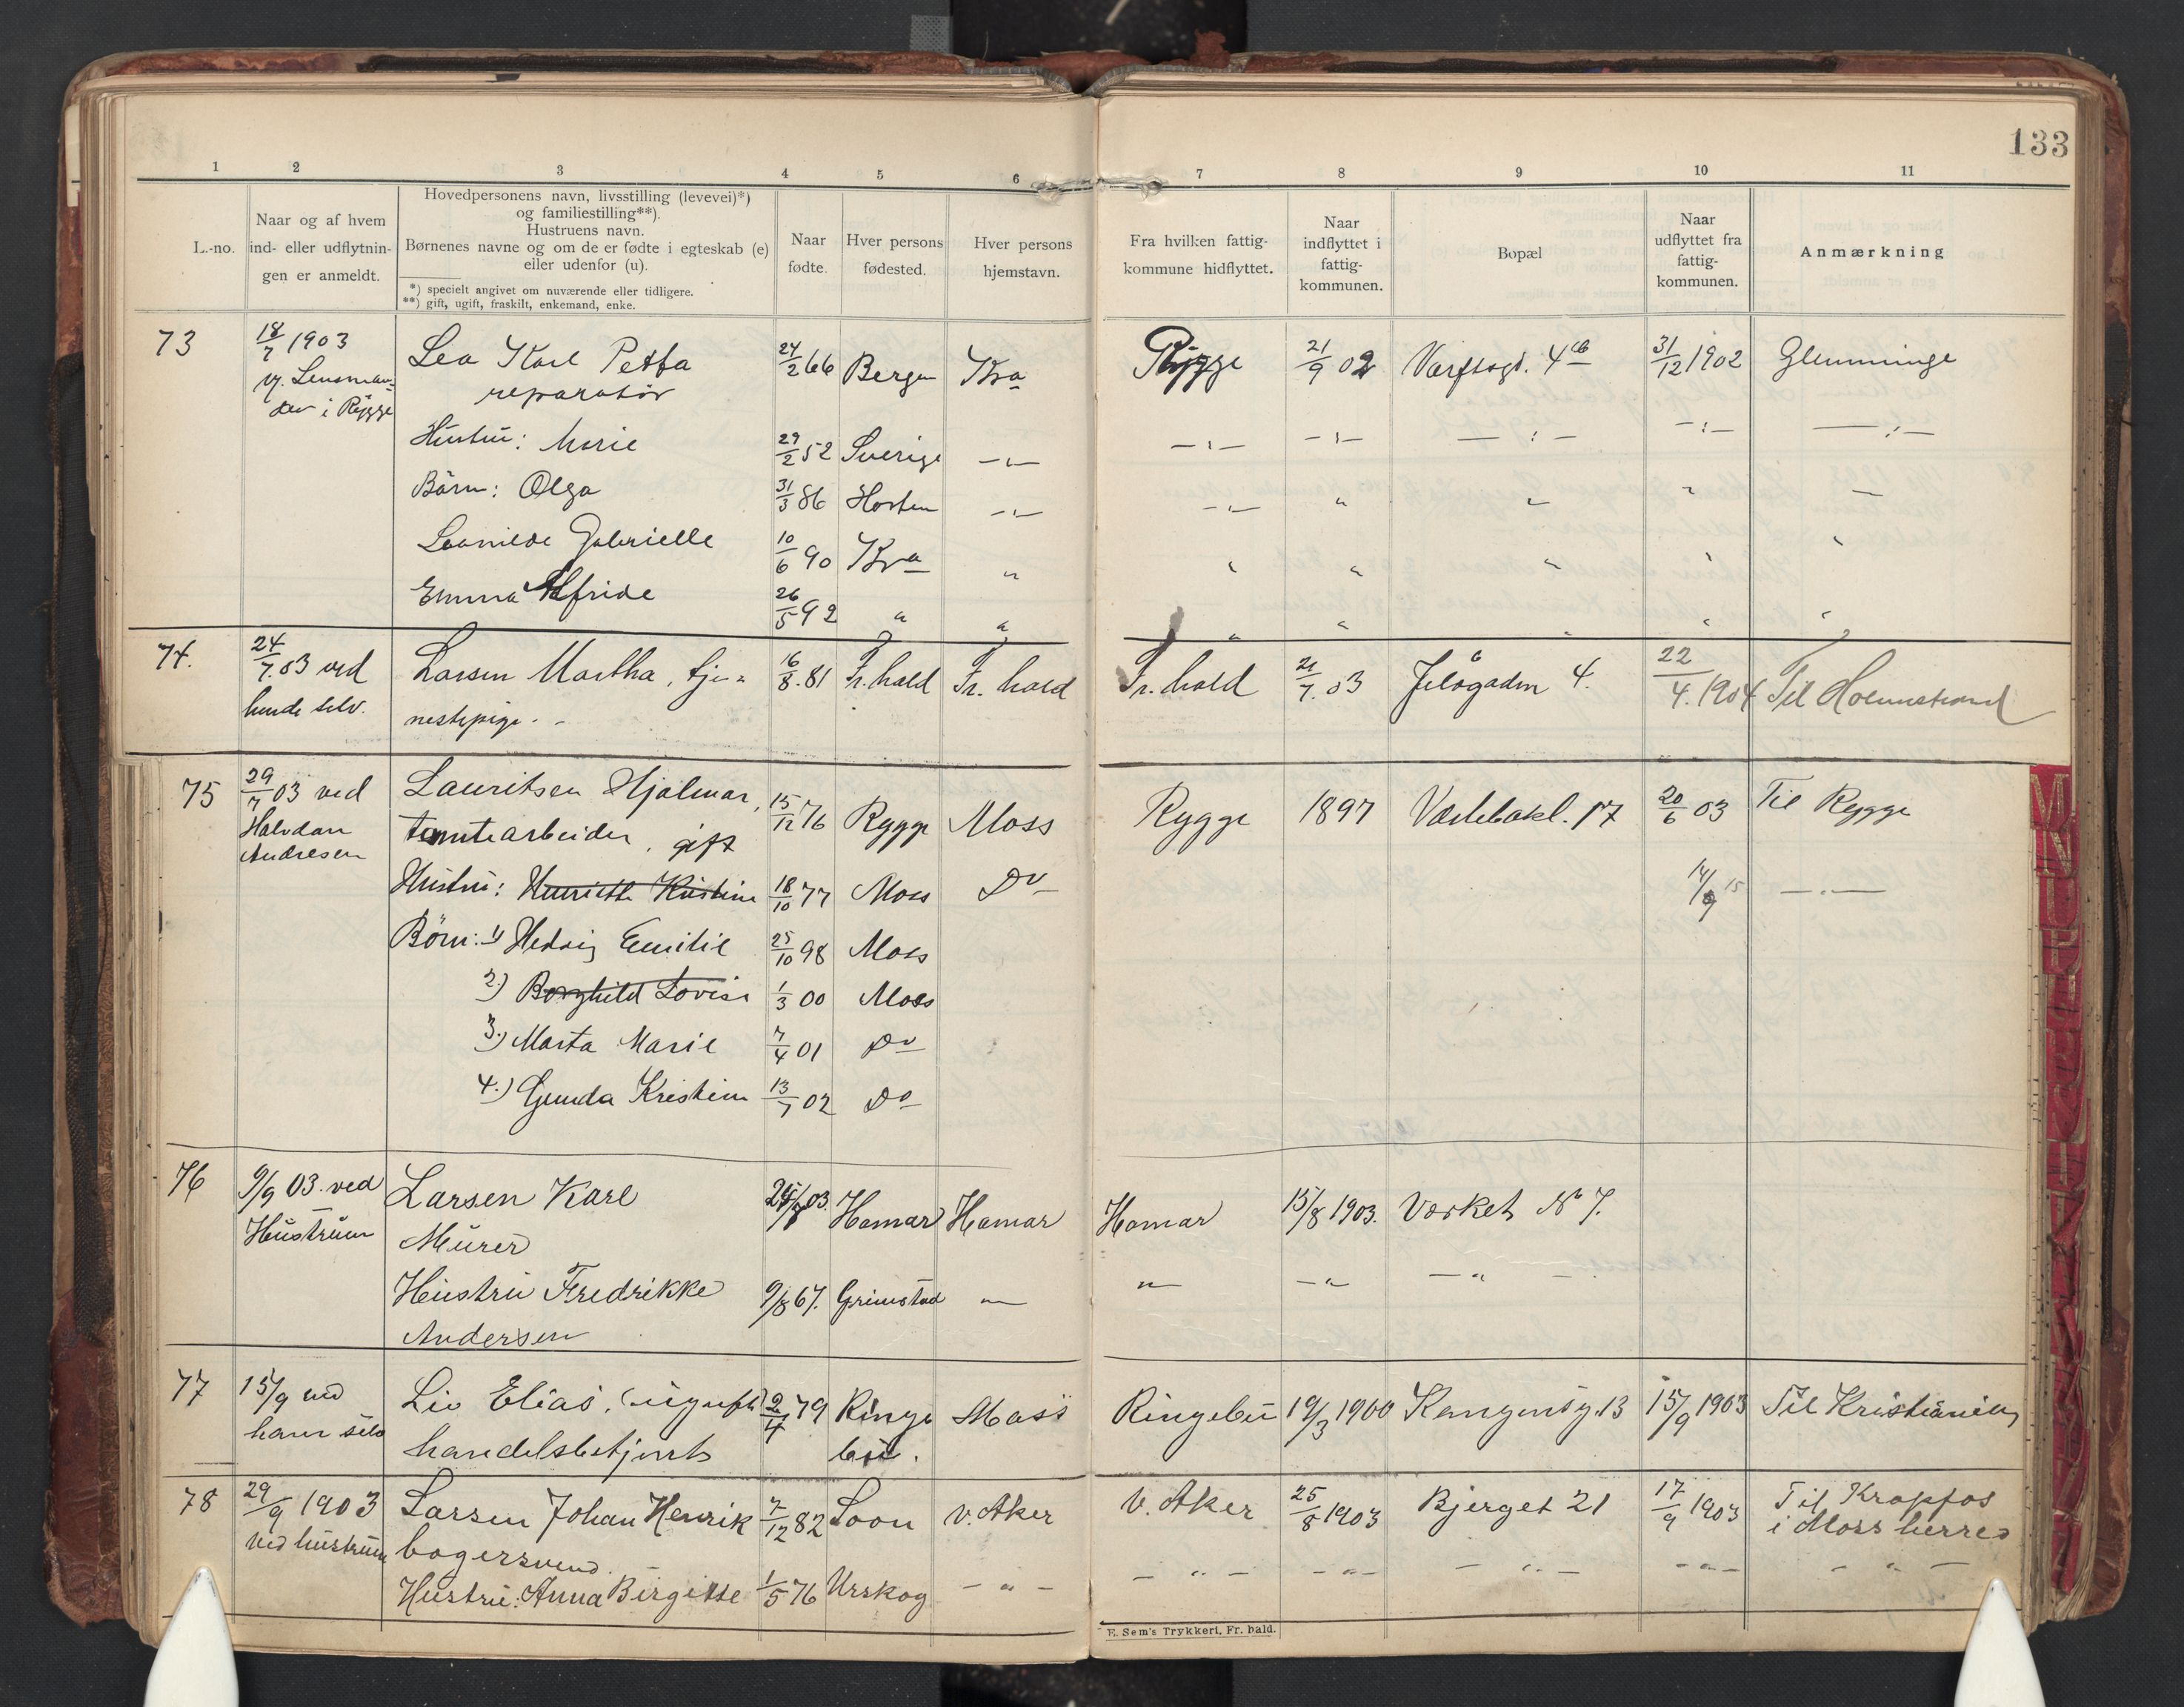 133
1 2 3 4 5 6 7 8 9 10 11
L.-no.
Naar og af hvem
ind- eller udflytnin-
gen er anmeldt.
Hovedpersonens navn, livsstilling (levevei)*)
og familiestilling**).
Hustruens navn.
Børnenes navne og om de er fødte i egteskab (e)
eller udenfor (u).
*) specielt angivet om nuværende eller tidligere.
**) gift, ugift, fraskilt, enkemand, enke.
Naar
fødte.
Hver persons
fødested.
Hver persons
hjemstavn.
Fra hvilken fattig-
kommune hidflyttet.
Naar
indflyttet i
fattig-
kommunen.
Bopæl
Naar
udflyttet fra
fattig-
kommunen.
Anmærkning
73 18/7 1903 Lea Karl 24/2 66 Bergen Kra Rygge 21/9 02 Værftsgt. 4 31/12 1902 Glemminge
v. Lensman-
den i Rygge reparatør
Hustru: Marie 29/2 52 Sverige
Børn: Olga 31/3 86 Horten
Gabrielle 10/6 90 Kra
Emma Alfride 26/5 92 "
74. 24/7. 03 ved Larsen Martha, tje- 16/8. 81 Fr.hald Fr. hald Fr. hald 21/7. 03 Jeløgaden 4. 22/4. 1904 Til Holmestrand
hende selv. nestepige
75 29/7 03 ved Lauritsen Hjalmar, 15/12 76 Rygge Moss Rygge 1897 Vardebakk. 17 20/6 03 Til Rygge
Halvdan tomtearbeider, gift
Andresen
Hustru: Henriette Kristine 18/10 77 Moss Do 14/9 15 — " —
Børn: 1) Hedvig Emilie 25/10 98 Moss
2) Borghild Lovise 1/3 00 Moss
3.) Marta Marie 7/4 01 Do
4.) Gunda Kristine 13/7 02 Do
76 9/9 03. ved Larsen Karl 03. Hamar Hamar Hamar 15/8 1903. Værket No 7.
Hustruen Murer
Hustru Fredrikke 9/8 67. Grimstad — " — " — " —
Andersen
77 15/9 ved Lie Elias, (ugift) 2/4 79 Ringe Moss Ringebu 19/3 1900 Kongensg. 13 15/9 1903 Til Kristiania
ham selv handelsbetjent bu.
78 29/9 1903 Larsen Johan Henrik 7/12 82 Soon V. Aker V. Aker 25/8 1903 Bjerget 21 17/9 1903 Til Krapfos
ved hustruen bagersvend. i Moss herred
Hustru: Anna Birgitte 1/5 76 Urskog — " — — " — — " — — " — — " — — " —
E. Sem's Trykkeri, Fr. hald.